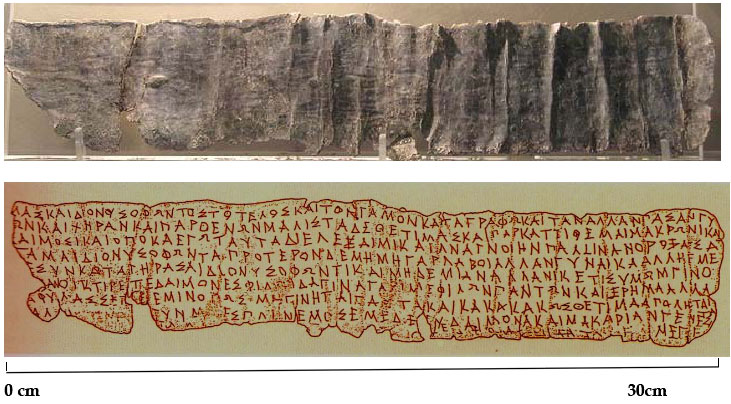 ΜΑΣΚΑΙΔΙΟΝΥΣΟΦΩΝΤΟΣΤΟΤΕΛΟΣΚΑΙΤΟΝΓΑΜΟΝΚΑΤΑΓΡΑΦΩΚΑΙΤΑΝΑΛΛΑΝΠΑΣΑΝΓΥ
ΩΝΚΑΙΧΗΡΑΝΚΑΙΠΑΡΘΕΝΩΝΜΑΛΙΣΤΑΔΕΘΕΤΙΜΑΣΚΑΙΠΑΡΚΑΤΤΙΘΕΜΑΙΜΑΚΡΩΝΙΚΑΙ
ΔΑΙΜΟΣΙΚΑΙΟΠΟΚΑΕΓΩΤΑΥΤΑΔΙΕΛΕΞΑΙΜΙΚΑΙΑΝΑΓΝΟΙΗΝΠΑΛΙΝΑΝΟΡΟΞΑΣΑ
ΓΑΜΑΙΔΙΟΝΥΣΟΦΩΝΤΑΠΡΟΤΕΡΟΝΔΕΜΗΜΗΓΑΡΛΑΒΟΙΑΛΛΑΝΓΥΝΑΙΚΑΑΛΛΗΕΜΕ
ΕΣΥΝΚΑΤΑΓΗΡΑΣΑΙΔΙΟΝΥΣΟΦΩΝΤΙΚΑΙΜΗΔΕΜΙΑΝΑΛΛΑΝΙΚΕΤΙΣΥΜΩΝΓΙΝΟ
ΑΝΟΙΚΤΙΡΕΤΕΔΑΙΜΟΝΕΣΦΙΛΟΙΔΑΓΙΝΑΓΑΡΙΜΕΦΙΛΩΝΠΑΝΤΩΝΚΑΙΕΡΗΜΑΑΛΛΑ
ΦΥΛΑΣΣΕΤΕΕΜΙΝΟΠΩΣΜΗΓΙΝΗΤΑΙΤΑΥΤΑΚΑΙΚΑΚΑΚΑΚΩΣΘΕΤΙΜΑΑΠΟΛΗΤΑΙ
ΑΛΕΥΝΜΕΣΠΛΗΝΕΜΟΣΕΜΕΔΕΕΥΔΑΙΜΟΝΑΚΑΙΜΑΚΑΡΙΑΝΓΕΝΕΣΤΑΙ
0 cm 30cm